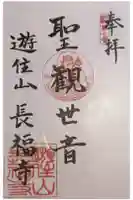 奉拝
聖観世音
遊住山長福寺